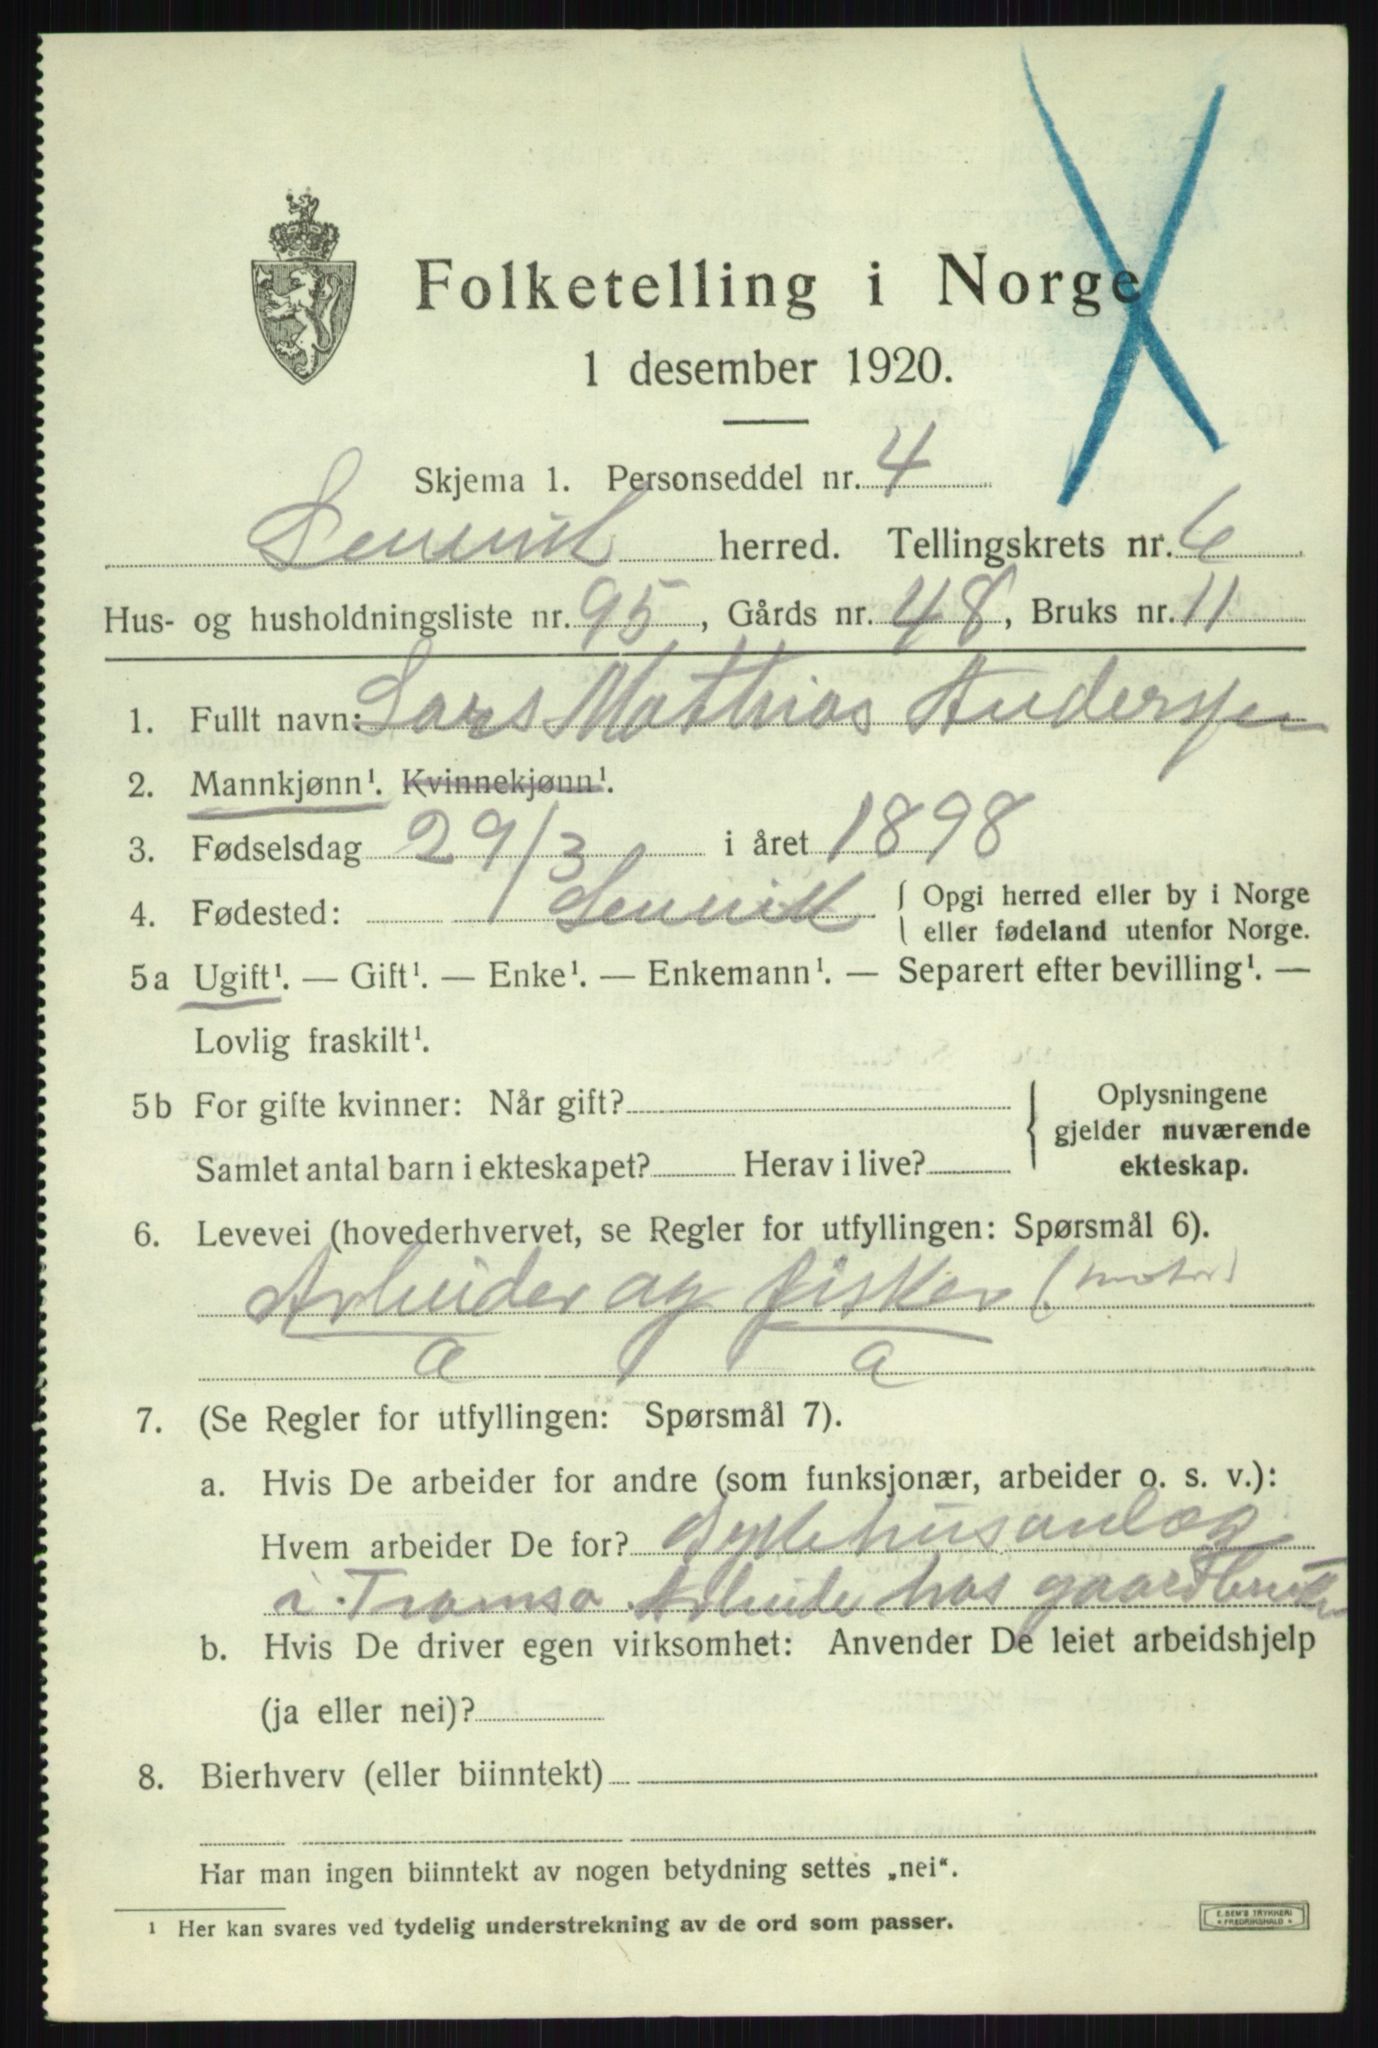 Folketelling i Norge
1 desember 1920.
Skjema 1. Personseddel nr. 4
Lenvik herred. Tellingskrets nr. 6
Hus- og husholdningsliste nr. 95, Gårds nr. 48, Bruks nr. 11
1. Fullt navn: Lars Mathias Andersen
2. Mannkjønn¹. Kvinnekjønn¹.
3. Fødselsdag 29/3 i året 1898
4. Fødested: Lenvik { Opgi herred eller by i Norge
eller fødeland utenfor Norge.
5a Ugift¹. — Gift¹. — Enke¹. — Enkemann¹. — Separert efter bevilling¹. —
Lovlig fraskilt¹.
5b For gifte kvinner: Når gift? { Oplysningene
gjelder nuværende
Samlet antal barn i ekteskapet? Herav i live? ekteskap.
6. Levevei (hovederhvervet, se Regler for utfyllingen: Spørsmål 6).
Arbeider og fisker (motor)
a a
7. (Se Regler for utfyllingen: Spørsmål 7).
a. Hvis De arbeider for andre (som funksjonær, arbeider o. s. v.):
Hvem arbeider De for? Sykehusanlæg
i Tromsø Arbeide hos gaardbruker
b. Hvis De driver egen virksomhet: Anvender De leiet arbeidshjelp
(ja eller nei)?
8. Bierhverv (eller biinntekt) —
Har man ingen biinntekt av nogen betydning settes „nei“.
¹ Her kan svares ved tydelig understrekning av de ord som passer.
E. SEM'S TRYKKERI
* FREDRIKSHALD *